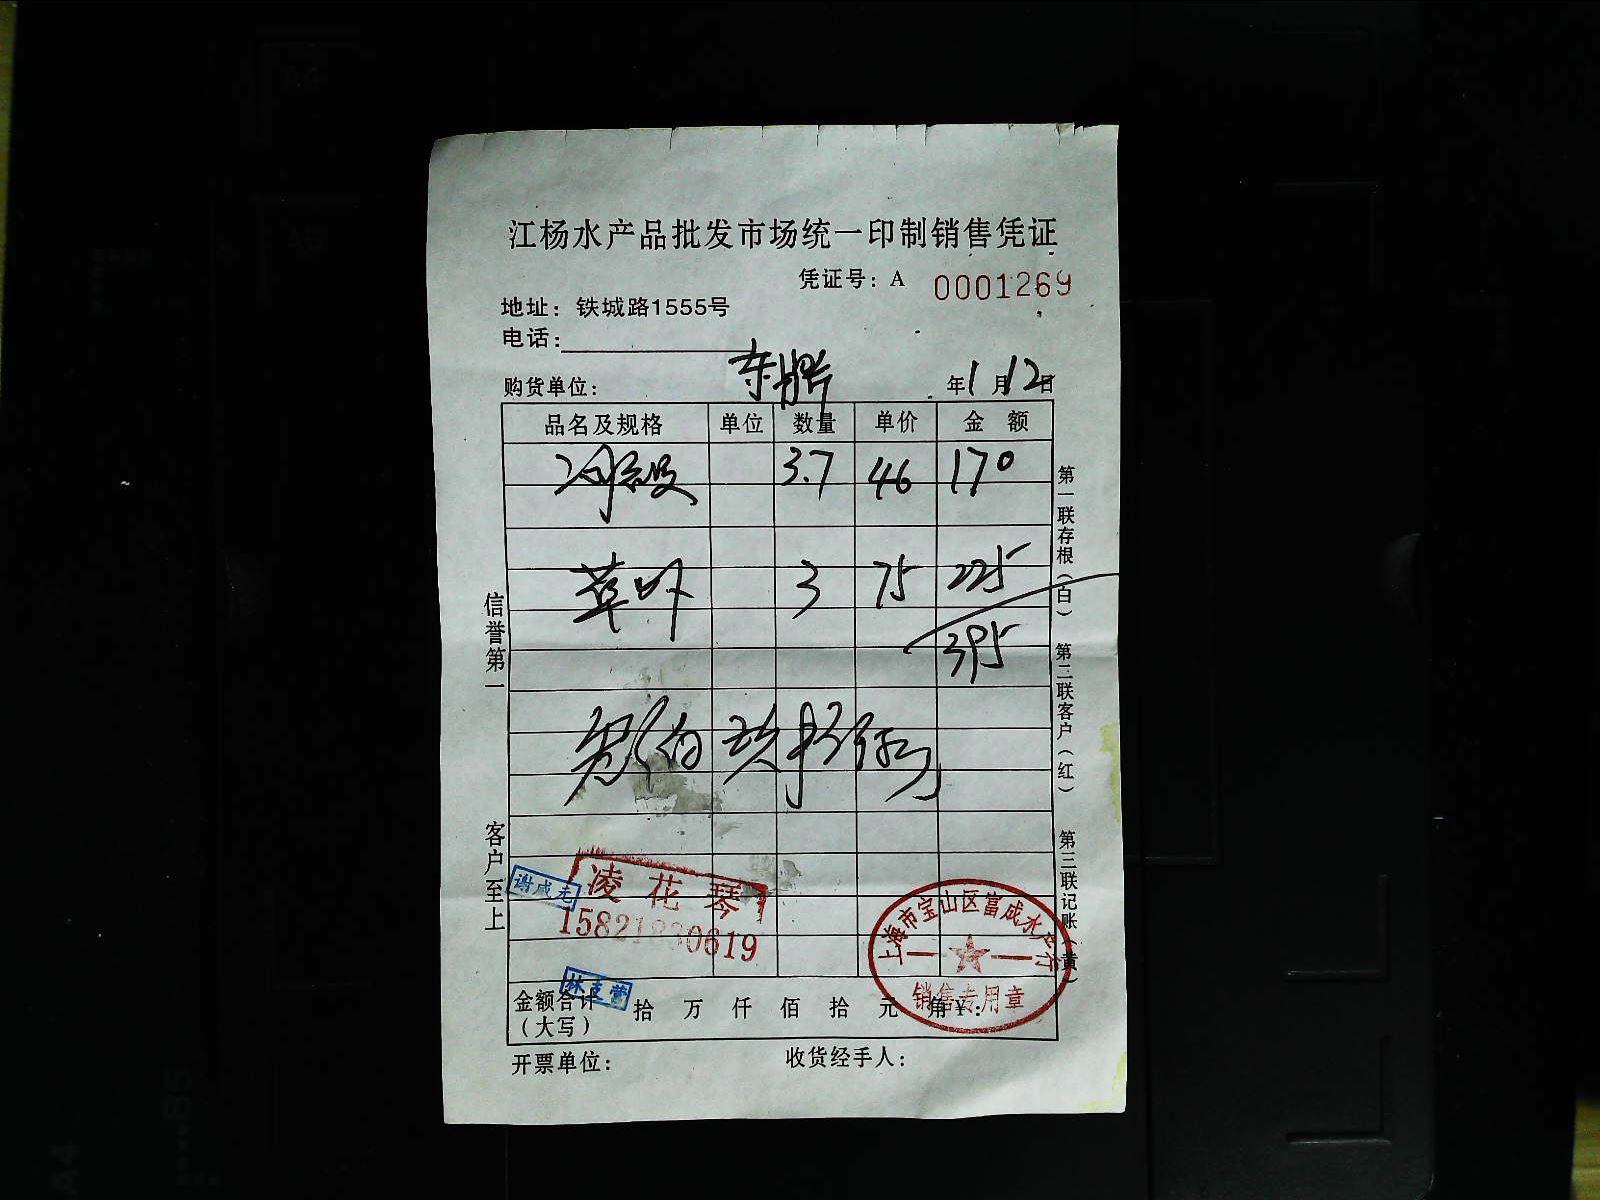 江杨水产品批发市场统一印制销售凭证
凭证号：A 0001269
地址：铁城路1555号
电话：
购货单位： 年1月12日
品名及规格 单位 数量 单价 金额
3.7 46 170
草虾 3 75 225
395
叁佰玖拾伍
信誉第一
客户至上
第一联存根（白）
第二联客户（红）
第三联记账（黄）
谢成元
凌花琴
上海市宝山区富成水产行
销售专用章
金额合计（大写） 拾 万 仟 佰 拾 元 角 ¥：
开票单位： 收货经手人：